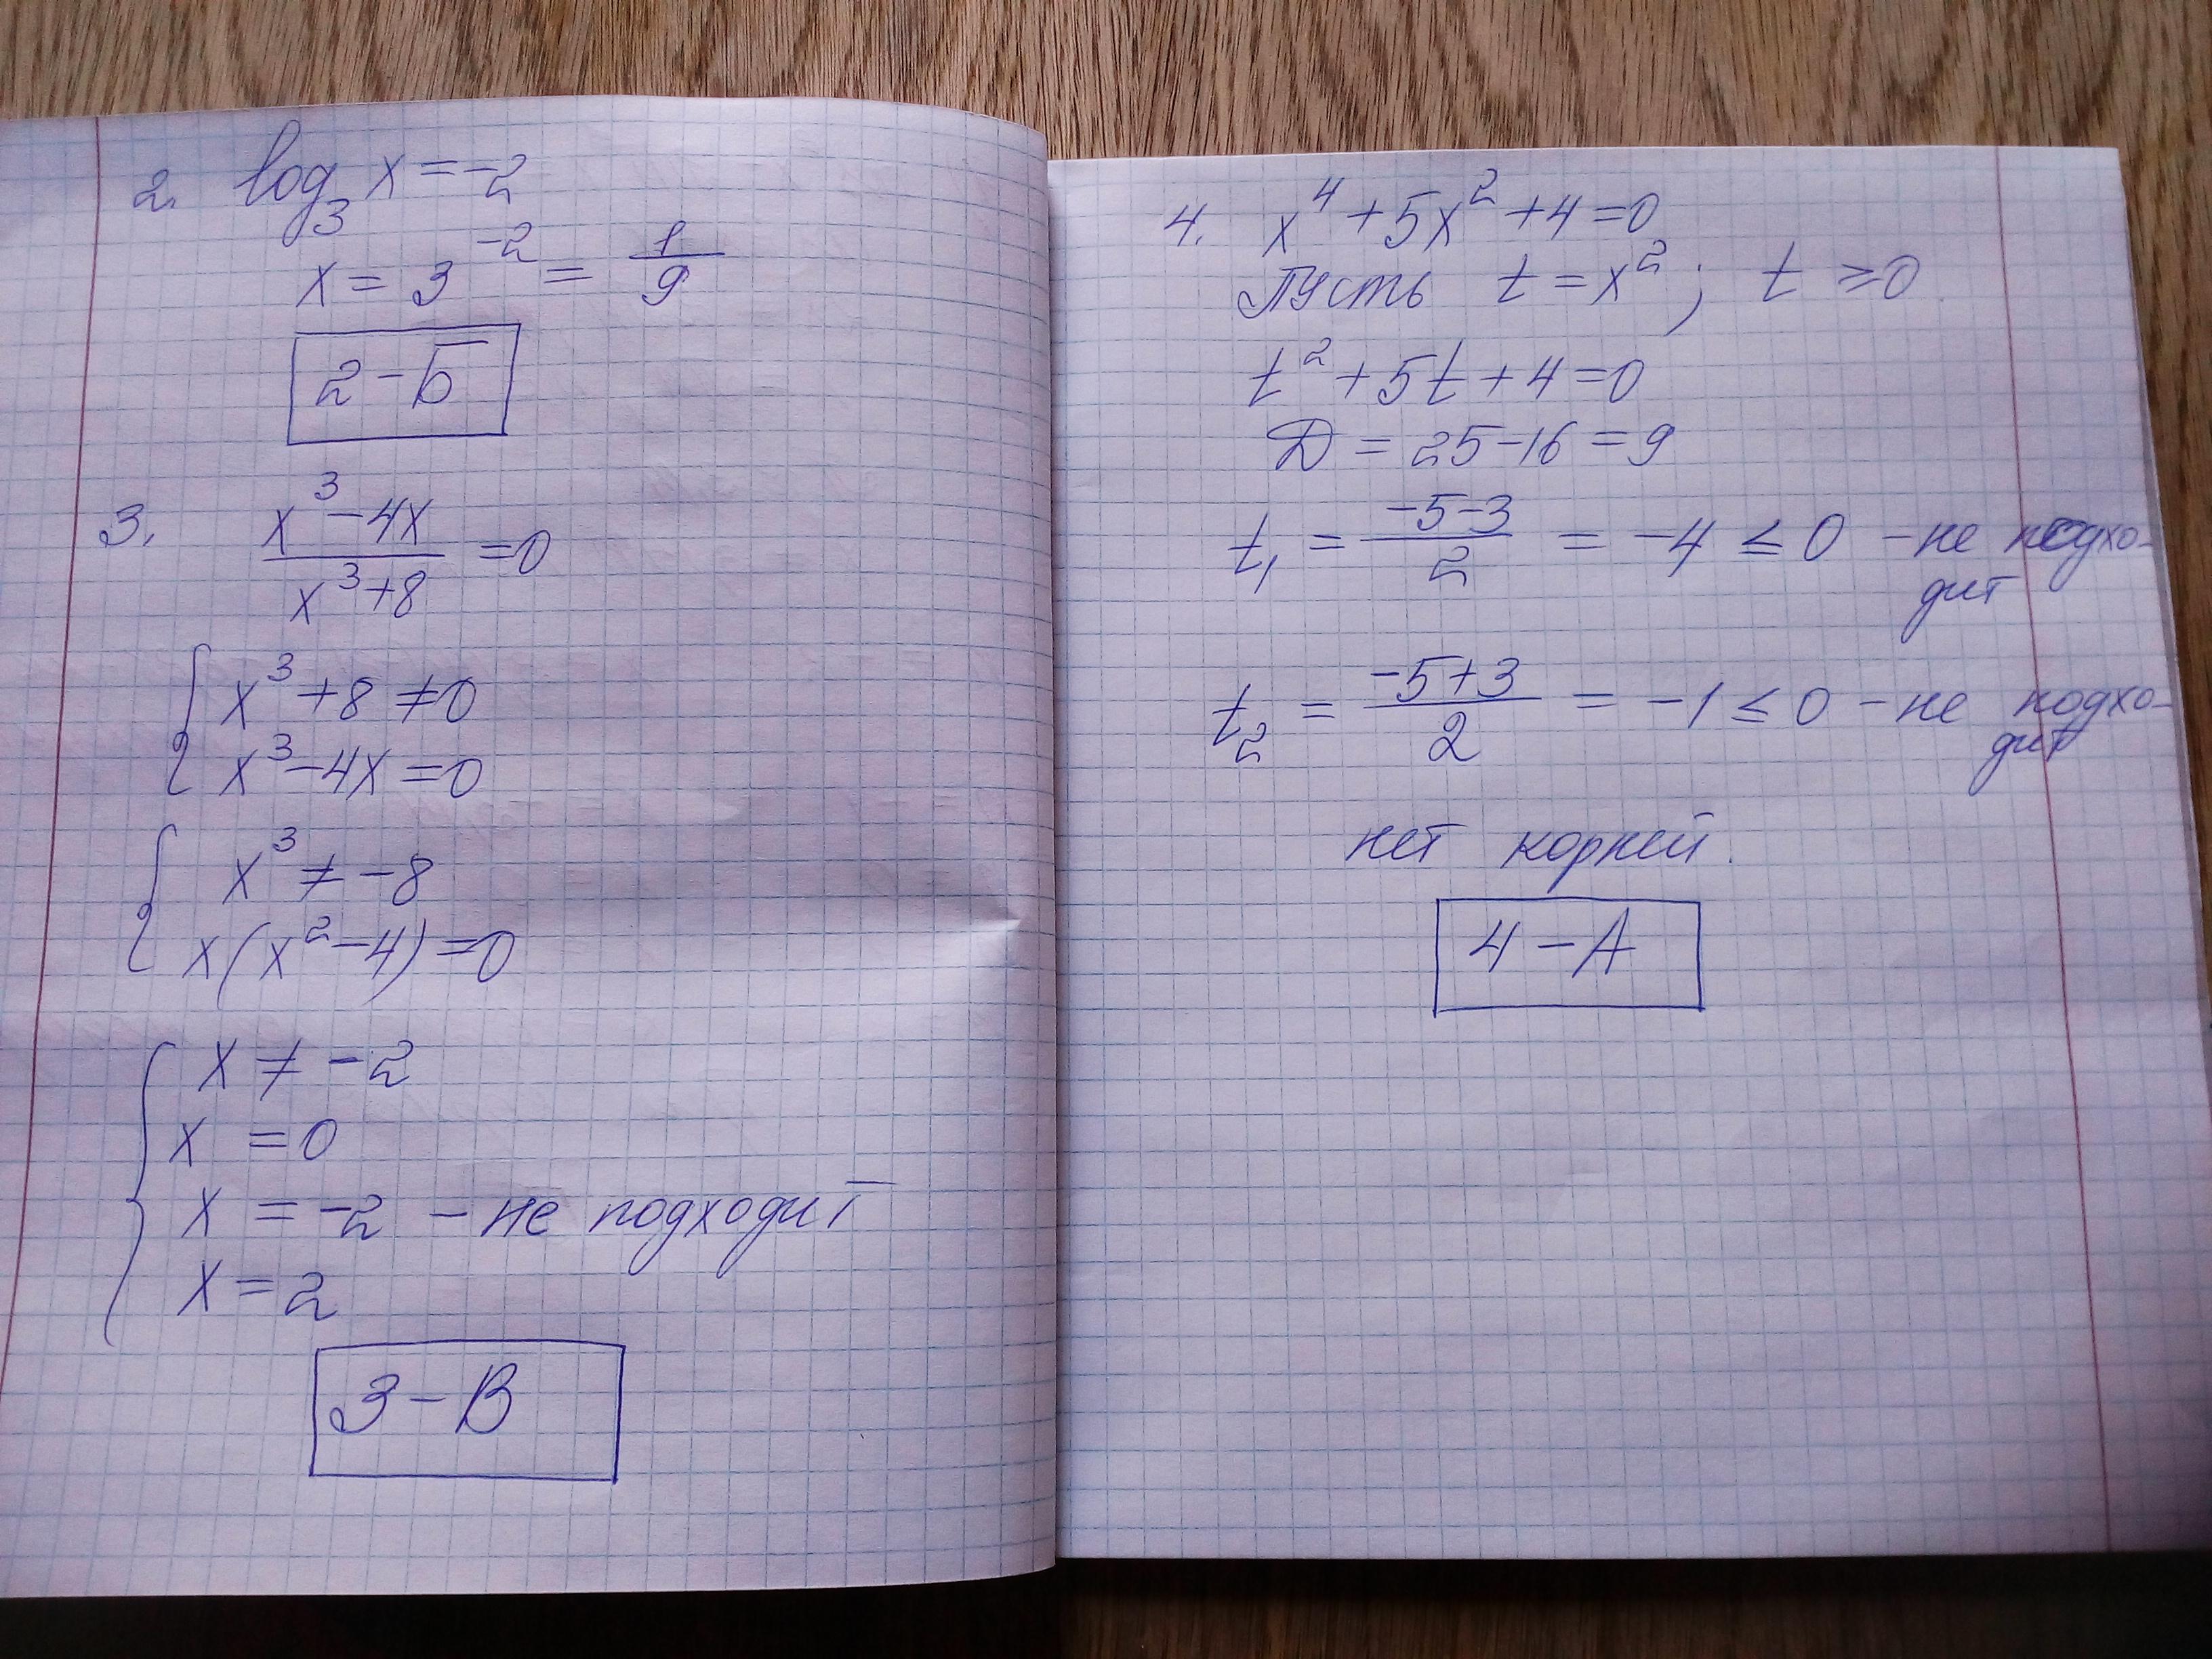 2. log₃ x = -2
x = 3⁻² = 1/9
2 - Б
3. (x³ - 4x)/(x³ + 8) = 0
{ x³ + 8 ≠ 0
x³ - 4x = 0
{ x³ ≠ -8
x(x² - 4) = 0
{ x ≠ -2
x = 0
x = -2 - не подходит
x = 2
3 - В
4. x⁴ + 5x² + 4 = 0
Пусть t = x²; t ≥ 0
t² + 5t + 4 = 0
Д = 25 - 16 = 9
t₁ = (-5-3)/2 = -4 ≤ 0 - не подхо-
дит
t₂ = (-5+3)/2 = -1 ≤ 0 - не подхо-
дит
нет корней.
4 - А